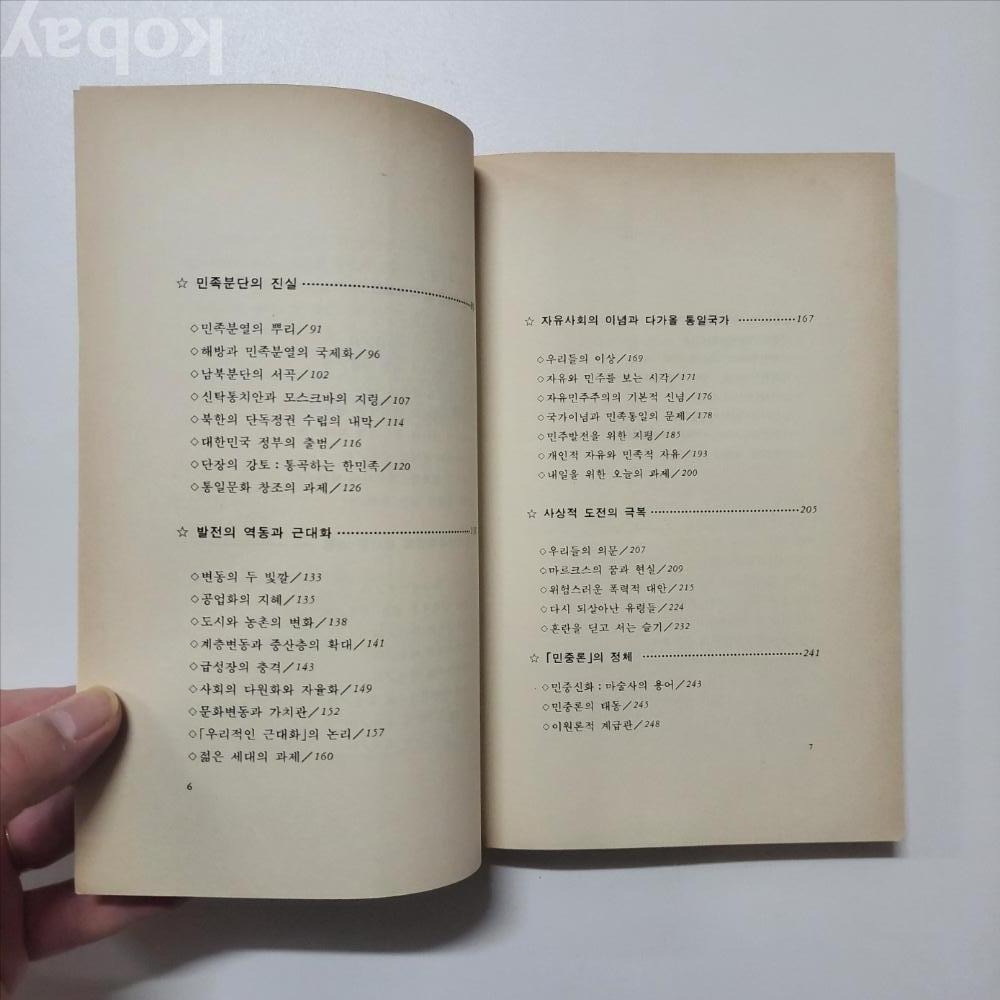 kobay
☆ 민족분단의 진실
◇민족분열의 뿌리/91
◇해방과 민족분열의 국제화/96
◇남북분단의 서곡/102
◇신탁통치안과 모스크바의 지령/107
◇북한의 단독정권 수립의 내막/114
◇대한민국 정부의 출범/116
◇단장의 강토 : 통곡하는 한민족/120
◇통일문화 창조의 과제/126
☆ 발전의 역동과 근대화
◇변동의 두 빛깔/133
◇공업화의 지혜/135
◇도시와 농촌의 변화/138
◇계층변동과 중산층의 확대/141
◇급성장의 충격/143
◇사회의 다원화와 자율화/149
◇문화변동과 가치관/152
◇「우리적인 근대화」의 논리/157
◇젊은 세대의 과제/160
6
☆ 자유사회의 이념과 다가올 통일국가 ················167
◇우리들의 이상/169
◇자유와 민주를 보는 시각/171
◇자유민주주의의 기본적 신념/176
◇국가이념과 민족통일의 문제/178
◇민주발전을 위한 지평/185
◇개인적 자유와 민족적 자유/193
◇내일을 위한 오늘의 과제/200
☆ 사상적 도전의 극복 ········································205
◇우리들의 의문/207
◇마르크스의 꿈과 현실/209
◇위험스러운 폭력적 대안/215
◇다시 되살아난 유령들/224
◇혼란을 딛고 서는 슬기/232
☆ 「민중론」의 정체 ···········································241
◇민중신화 : 마술사의 용어/243
◇민중론의 태동/245
◇이원론적 계급관/248
7